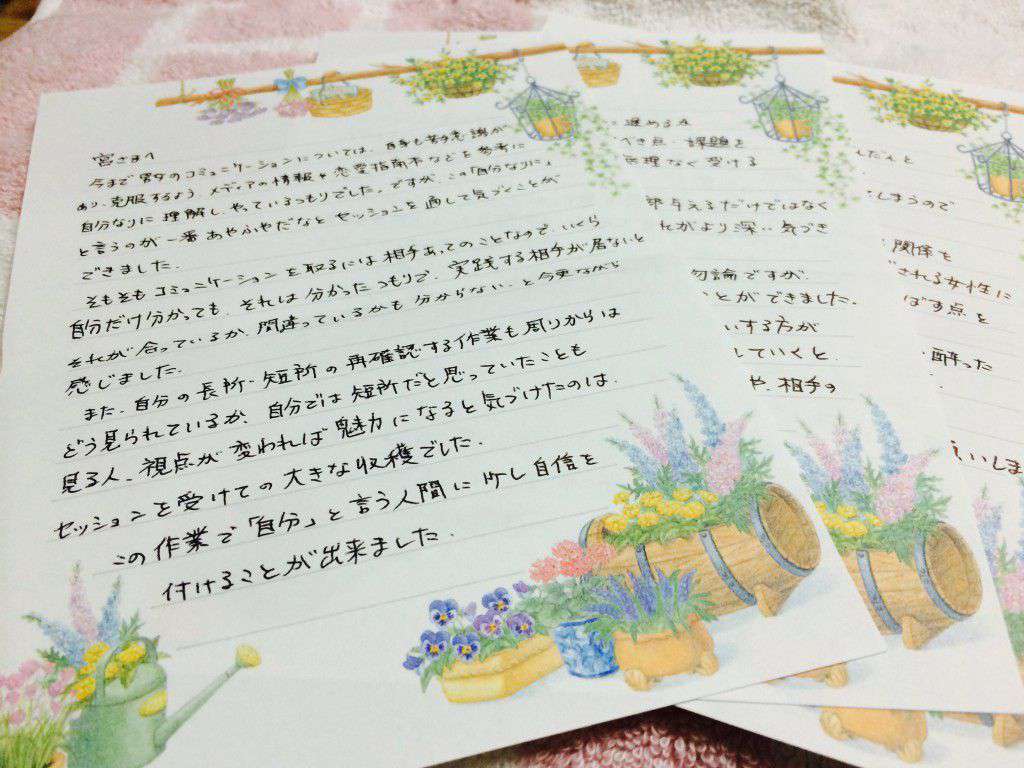 宮さまへ
今まで男女のコミュニケーションについては、苦手意識が
あり、克服するよう、メディアの情報や恋愛指南本などを参考に
自分なりに理解し、やっているつもりでした。ですが、この「自分なりに」
と言うのが一番あやふやだなとセッションを通して気づくことが
できました。
そもそもコミュニケーションを取るには相手あってのことなので、いくら
自分だけ分かっても、それは分かったつもりで、実践する相手が居ないと
それが合っているか、間違っているかも分からない、と今更ながら
感じました。
また、自分の長所・短所の再確認する作業も周りからは
どう見られているか、自分では短所だと思っていたことも
見る人、視点が変われば魅力になると気づけたのは、
セッションを受けての大きな収穫でした。
この作業で「自分」と言う人間に少し自信を
付けることが出来ました。
進める上
べき点・課題を
無理なく受ける
与えるだけではなく
がより深い気づき
勿論ですが、
ことができました。
いする方が
していくと、
や、相手の
だんと
しまうので
関係を
される女性に
ばす点を
酔った
いしま